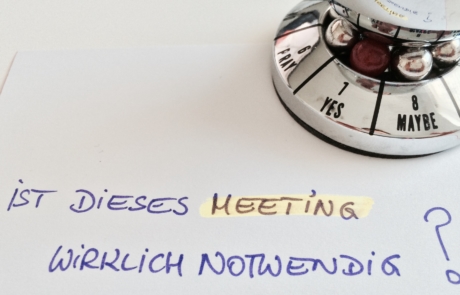 6
PRAY
7
YES
8
MAYBE
IST DIESES MEETING
WIRKLICH NOTWENDIG ?